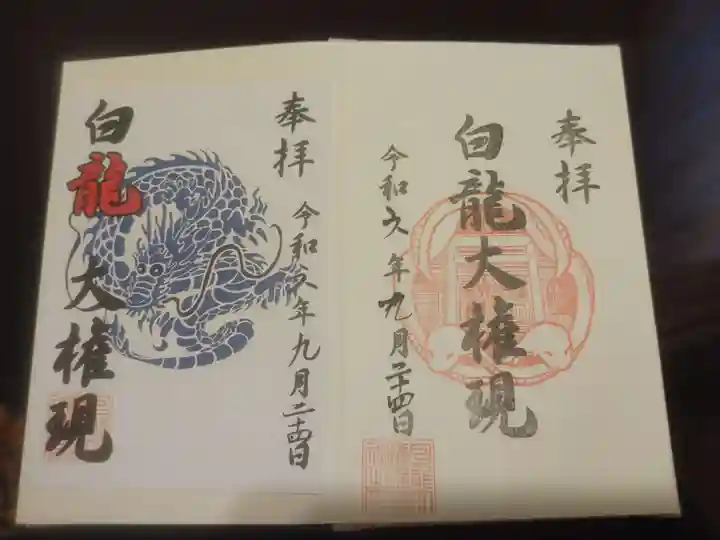 奉拝
白龍大権現
令和六年九月二十四日
奉拝
令和六年九月二十四日
白龍大権現